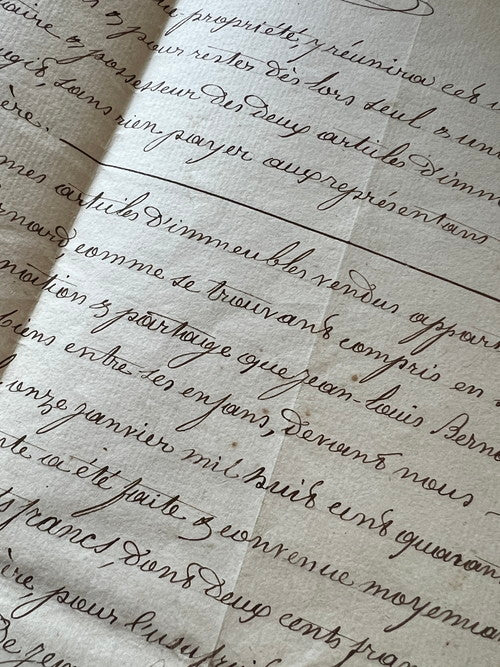 propriété, y réunira ces
& pour rester dès lors seul & uni
& possesseur des deux articles d'imm
sans rien payer aux représentans
ère.
mes articles d'immeubles vendus appart
ernard comme se trouvant compris en
nation & partage que Jean-Louis Berna
biens entre ses enfans, devant nous
onze janvier mil huit cent quaran
nte a été faite & convenue moyenna
ts francs, dont deux cents fra
ère, pour l'usufruit